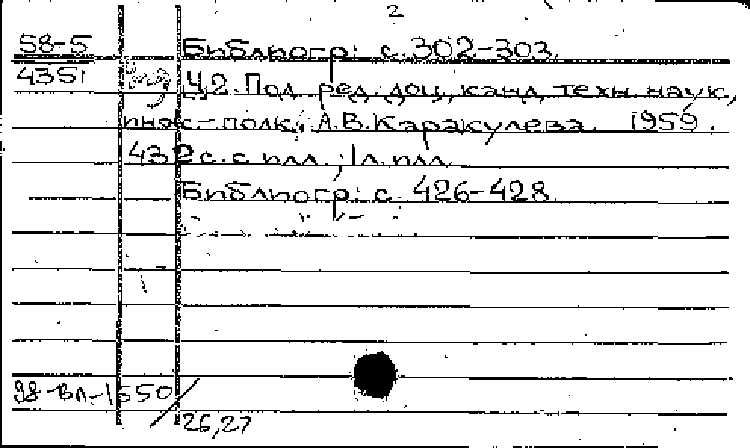 2
58-5 Библиогр: с. 302-303.
4351 Ч.2. Под ред. доц., канд. техн. наук,
инж.-полк. А.В. Каракулева. 1959.
432 с. с илл.; 1 л. илл.
Библиогр: с. 426-428.
98-ВЛ-1550/26,27